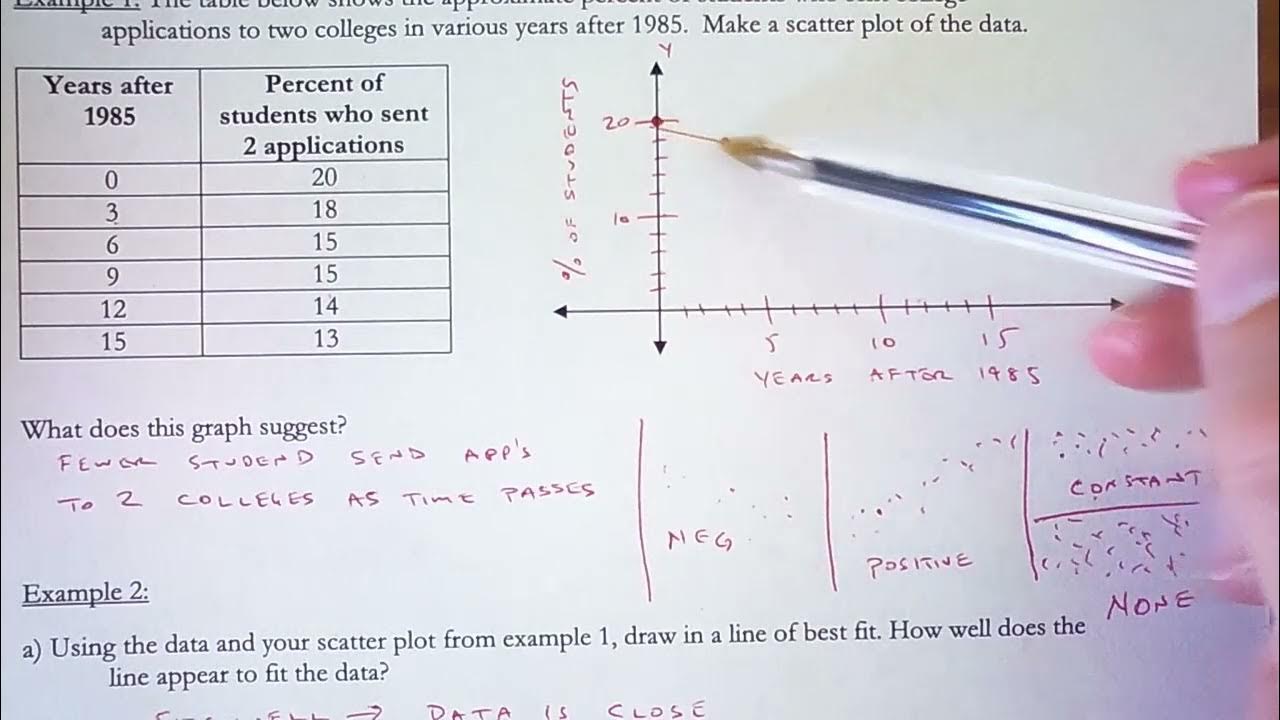 Example 1: The table below shows the approximate percent of students who sent college
applications to two colleges in various years after 1985. Make a scatter plot of the data.
Years after 1985 Percent of students who sent 2 applications
0 20
3 18
6 15
9 15
12 14
15 13
Y
20
10
% OF STUDENTS
5 10 15
YEARS AFTER 1985
What does this graph suggest?
FEWER STUDEND SEND APP'S
TO 2 COLLEGES AS TIME PASSES
NEG
POSITIVE
CONSTANT
NONE
Example 2:
a) Using the data and your scatter plot from example 1, draw in a line of best fit. How well does the
line appear to fit the data?
→ DATA IS CLOSE